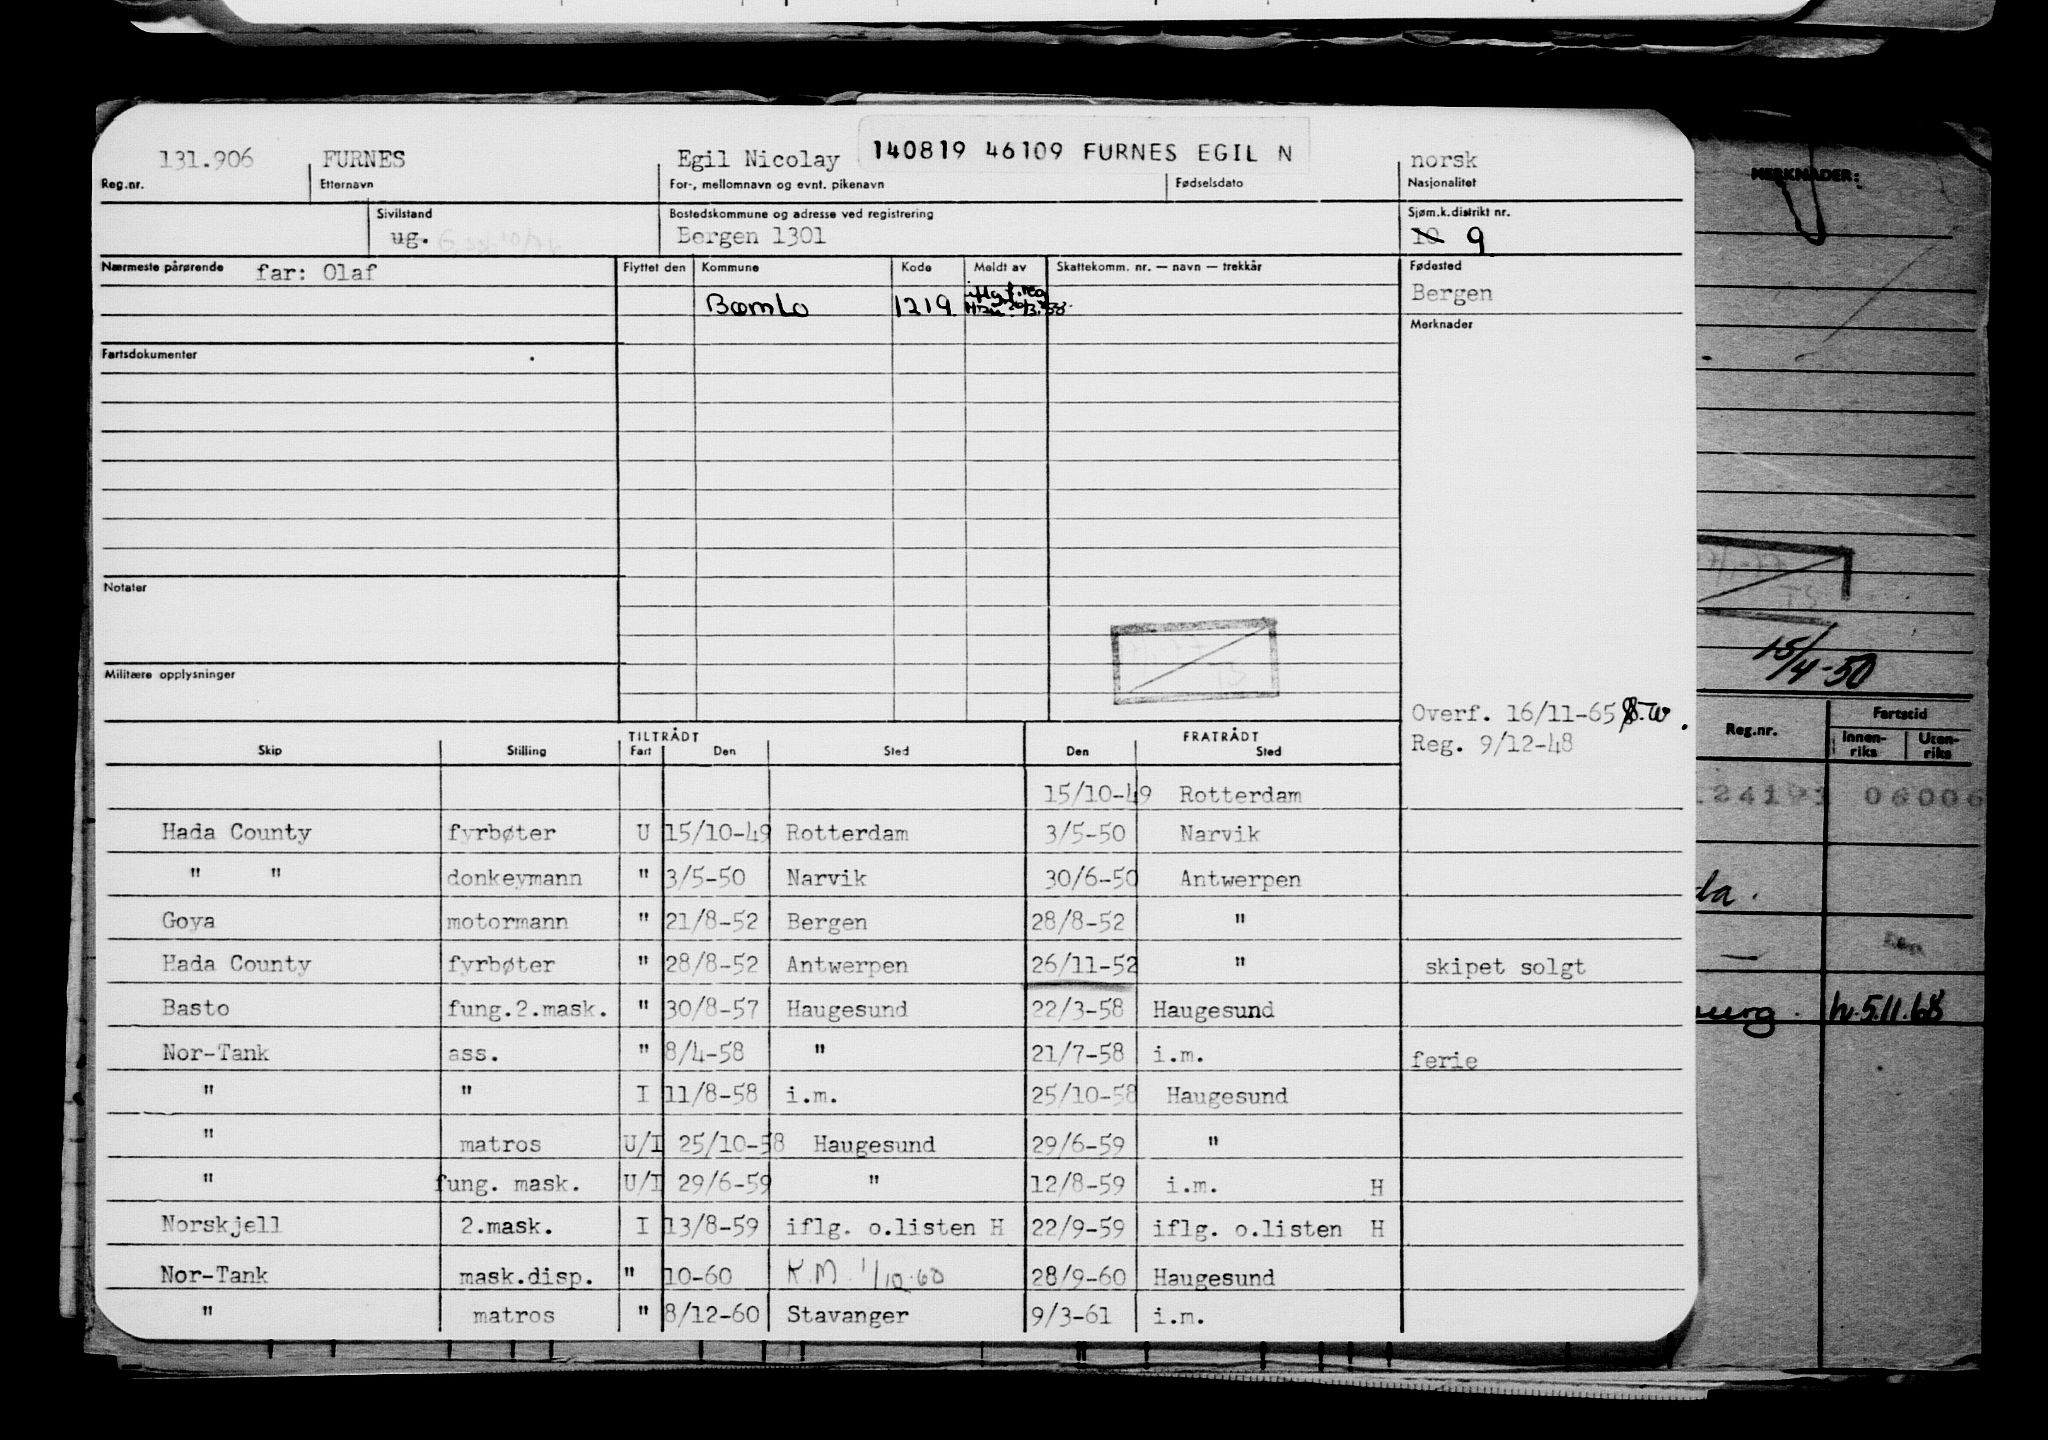 131.906 FURNES Egil Nicolay 140819 46109 FURNES EGIL N norsk
Reg.nr. Etternavn For-, mellomnavn og evnt. pikenavn Fødselsdato Nasjonalitet
Sivilstand Bostedskommune og adresse ved registrering Sjøm.k.distrikt nr.
ug. Bergen 1301 10 9
Nærmeste pårørende far: Olaf Flyttet den Kommune Kode Meldt av Skattekomm. nr. — navn — trekkår Fødested
Bergen
Bømlo 1219 iflg f.reg
Merknader
Fartsdokumenter
Notater
Militære opplysninger
Overf. 16/11-65
Reg. 9/12-48
TILTRÅDT FRATRÅDT
Skip Stilling Fart Den Sted Den Sted
15/10-49 Rotterdam
Hada County fyrbøter U 15/10-49 Rotterdam 3/5-50 Narvik
" " donkeymann " 3/5-50 Narvik 30/6-50 Antwerpen
Goya motormann " 21/8-52 Bergen 28/8-52 "
Hada County fyrbøter " 28/8-52 Antwerpen 26/11-52 " skipet solgt
Basto fung.2.mask. " 30/8-57 Haugesund 22/3-58 Haugesund
Nor-Tank ass. " 8/4-58 " 21/7-58 i.m. ferie
" " I 11/8-58 i.m. 25/10-58 Haugesund
" matros U/I 25/10-58 Haugesund 29/6-59 "
" fung. mask. U/I 29/6-59 " 12/8-59 i.m. H
Norskjell 2.mask. I 13/8-59 iflg. o.listen H 22/9-59 iflg. o.listen H
Nor-Tank mask.disp. " 10-60 K.M. 1/10-60 28/9-60 Haugesund
" matros " 8/12-60 Stavanger 9/3-61 i.m.
MERKNADER:
15/4-50
Reg.nr. Fartstid
Innen-riks Uten-riks
124193 06006
h. 5.11.68